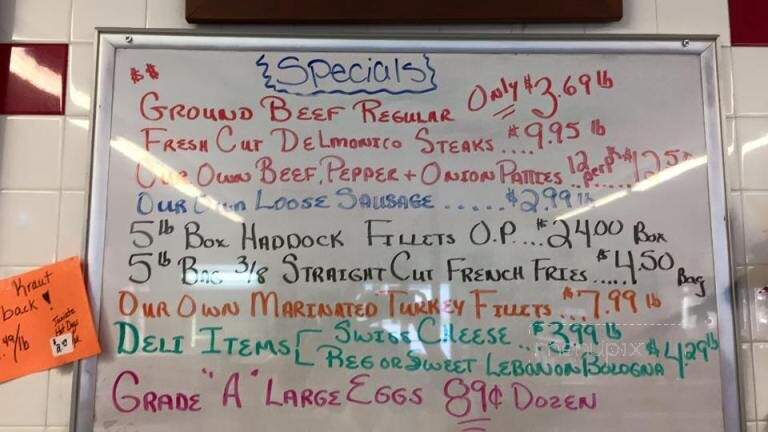 Specials
$$
Ground Beef Regular Only $3.69 lb
Fresh Cut Delmonico Steaks....$9.95 lb
Our Own Beef, Pepper + Onion Patties 12 per P $12.50
Our Own Loose Sausage.....$2.99 lb
5 lb Box Haddock Fillets O.P....$24.00 Box
5 lb Bag 3/8 Straight Cut French Fries....$4.50 Bag
Our Own Marinated Turkey Fillets...$7.99 lb
Deli Items Swiss Cheese...$3.99 lb
Reg or Sweet Lebanon Bologna $4.29 lb
Grade "A" Large Eggs 89¢ Dozen
Kraut
back!
.49/lb
menupix